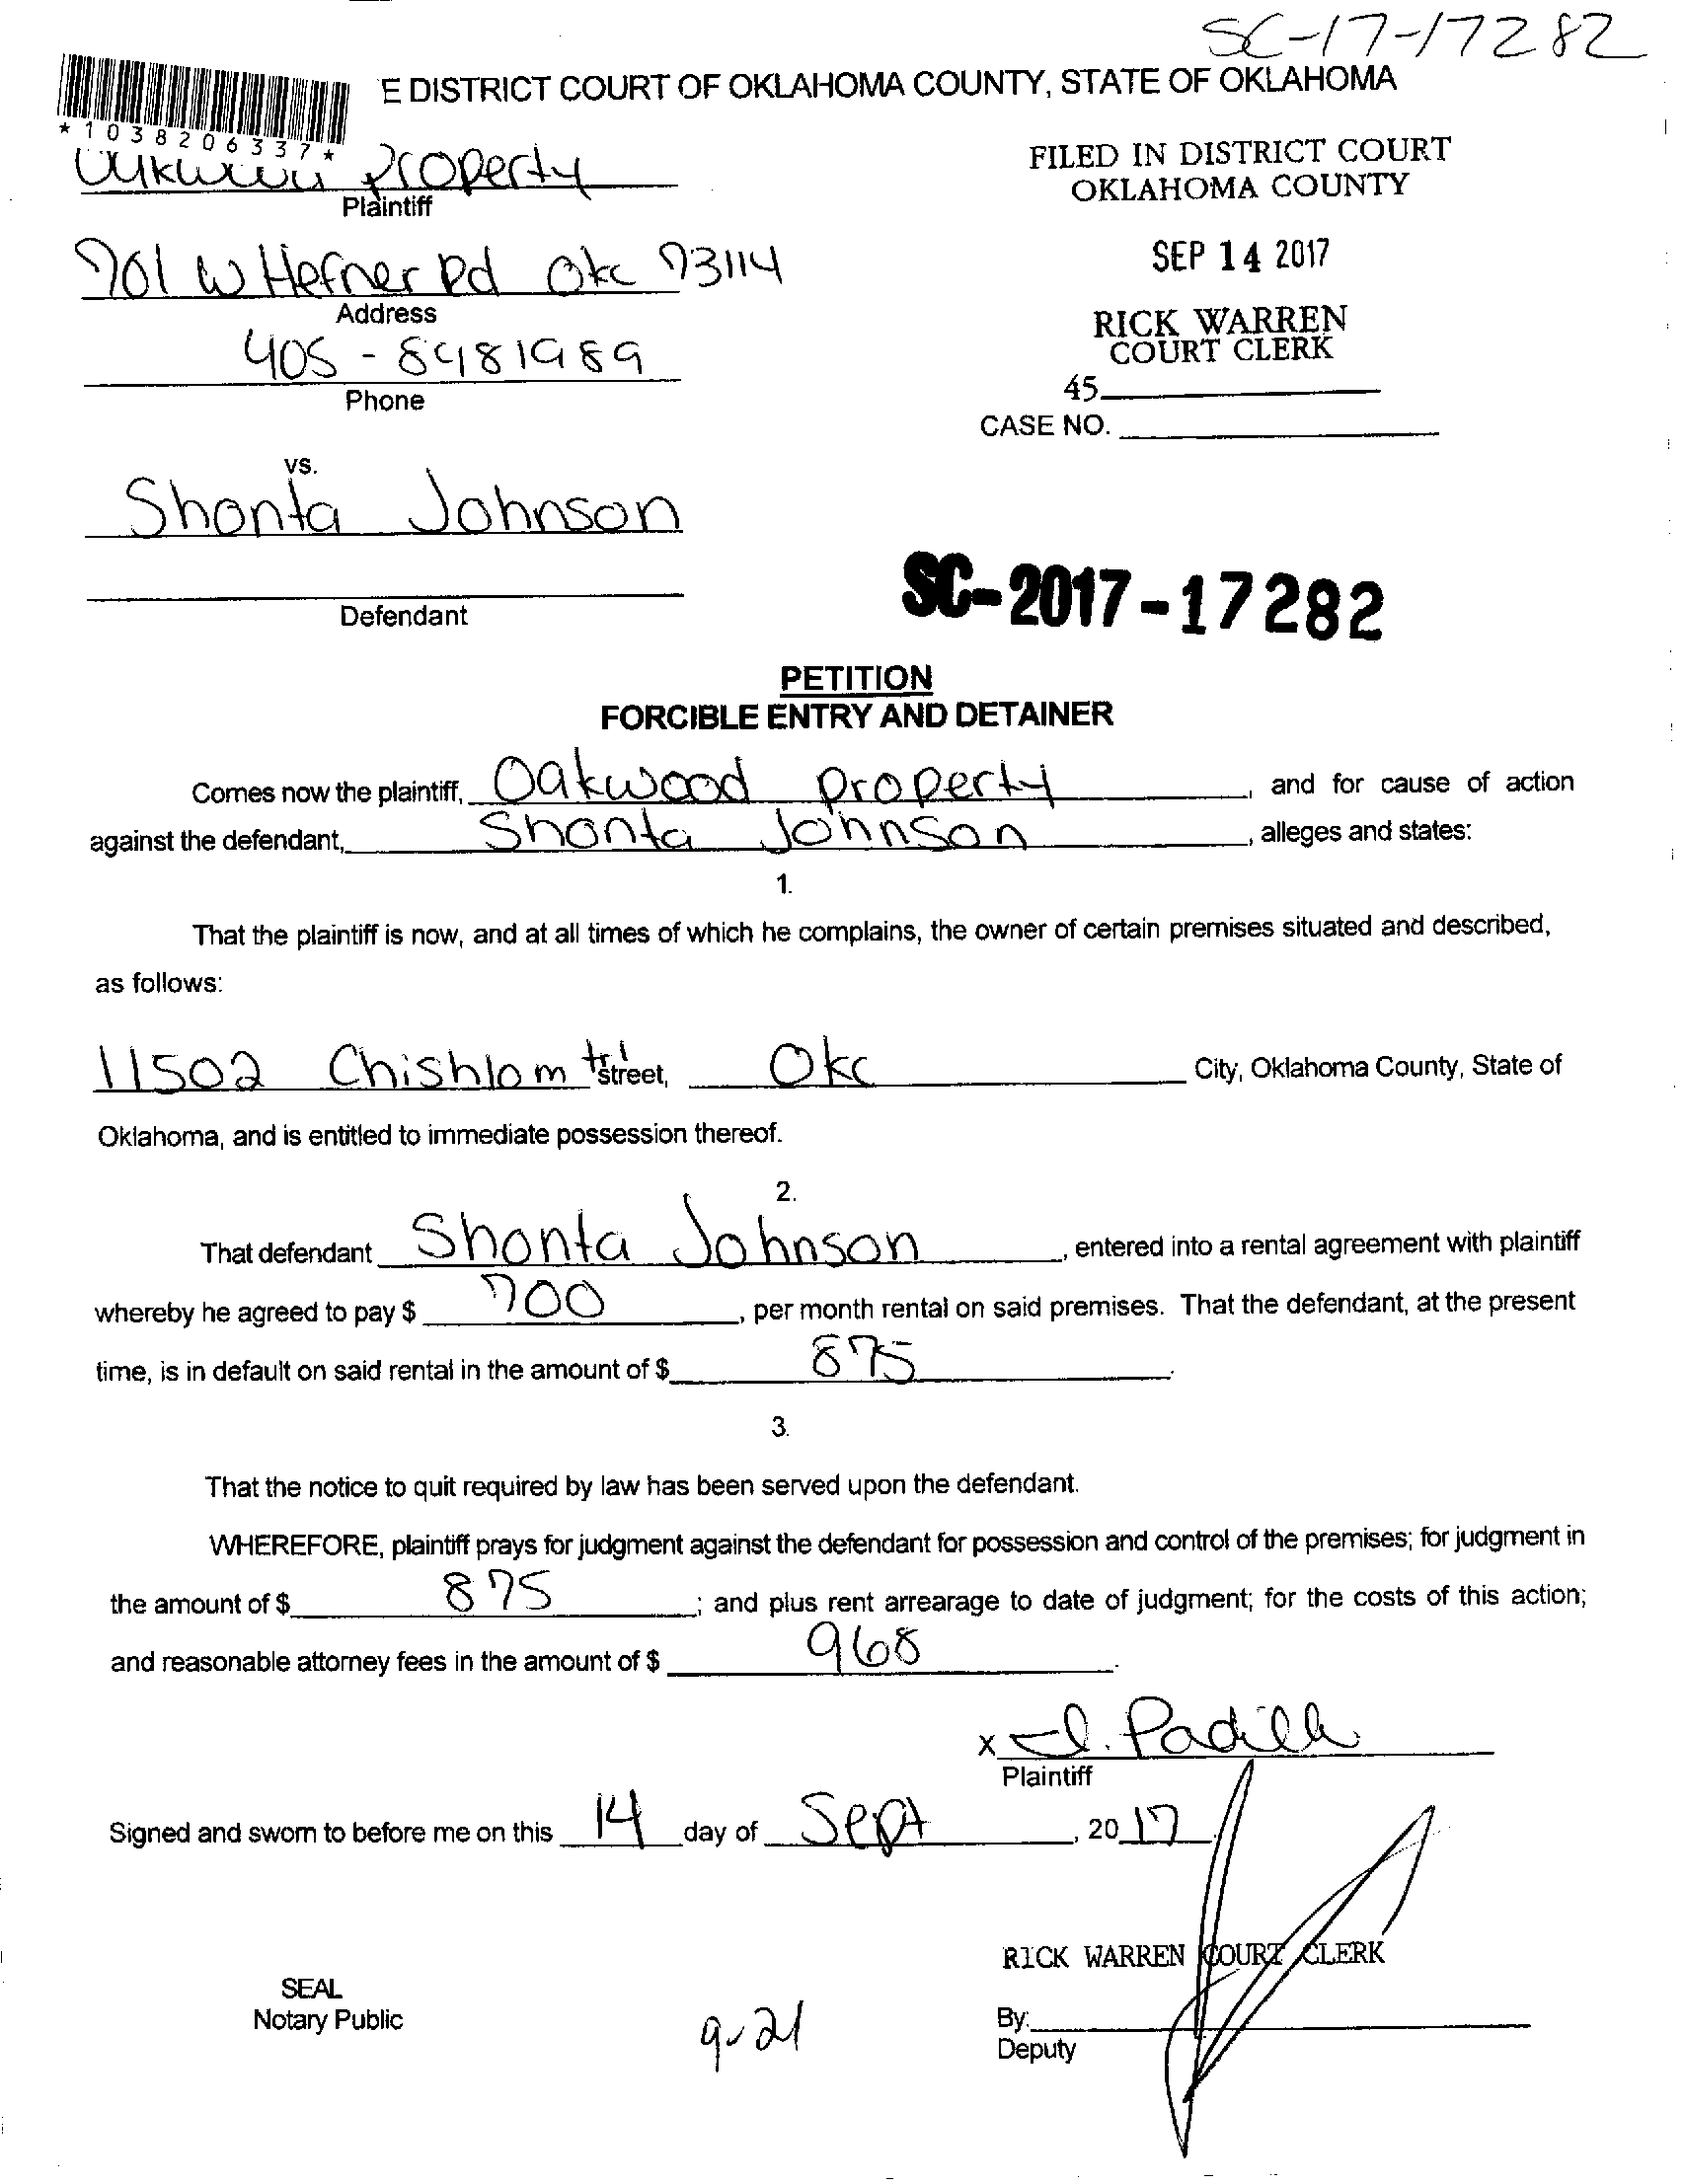 SC-17-17282
E DISTRICT COURT OF OKLAHOMA COUNTY, STATE OF OKLAHOMA
*1038206337*
Property
Plaintiff
FILED IN DISTRICT COURT
OKLAHOMA COUNTY
901 W Hefner Rd Okc 73114
Address
SEP 14 2017
405-8481989
Phone
RICK WARREN
COURT CLERK
45
CASE NO.
vs.
Shonta Johnson
Defendant
SC-2017-17282
PETITION
FORCIBLE ENTRY AND DETAINER
Comes now the plaintiff, Oakwood property, and for cause of action
against the defendant, Shonta Johnson, alleges and states:
1.
That the plaintiff is now, and at all times of which he complains, the owner of certain premises situated and described,
as follows:
11502 Chishlom trl street, Okc City, Oklahoma County, State of
Oklahoma, and is entitled to immediate possession thereof.
2.
That defendant Shonta Johnson, entered into a rental agreement with plaintiff
whereby he agreed to pay $ 700, per month rental on said premises. That the defendant, at the present
time, is in default on said rental in the amount of $ 875.
3.
That the notice to quit required by law has been served upon the defendant.
WHEREFORE, plaintiff prays for judgment against the defendant for possession and control of the premises; for judgment in
the amount of $ 875; and plus rent arrearage to date of judgment; for the costs of this action;
and reasonable attorney fees in the amount of $ 968.
x I. Padilla
Plaintiff
Signed and sworn to before me on this 14 day of Sept, 20 17
RICK WARREN COURT CLERK
SEAL
Notary Public
9-21
By:
Deputy